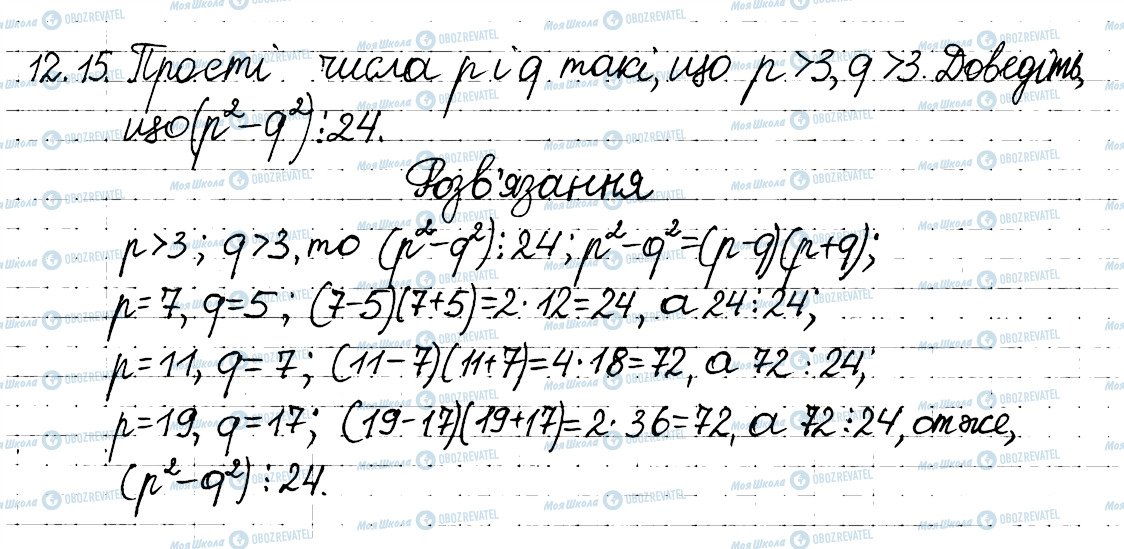 12.15. Прості числа p і q такі, що p >3, q >3. Доведіть,
що (p² − q²) ⋮ 24.
Розв'язання
p>3; q>3, то (p² − q²) ⋮ 24; p² − q² = (p−q)(p+q);
p = 7, q = 5; (7−5)(7+5) = 2 · 12 = 24, а 24 ⋮ 24;
p = 11, q = 7; (11 − 7)(11+7) = 4 · 18 = 72, а 72 ⋮ 24;
p = 19, q = 17; (19 − 17)(19+17) = 2 · 36 = 72, а 72 ⋮ 24, отже,
(p² − q²) ⋮ 24.